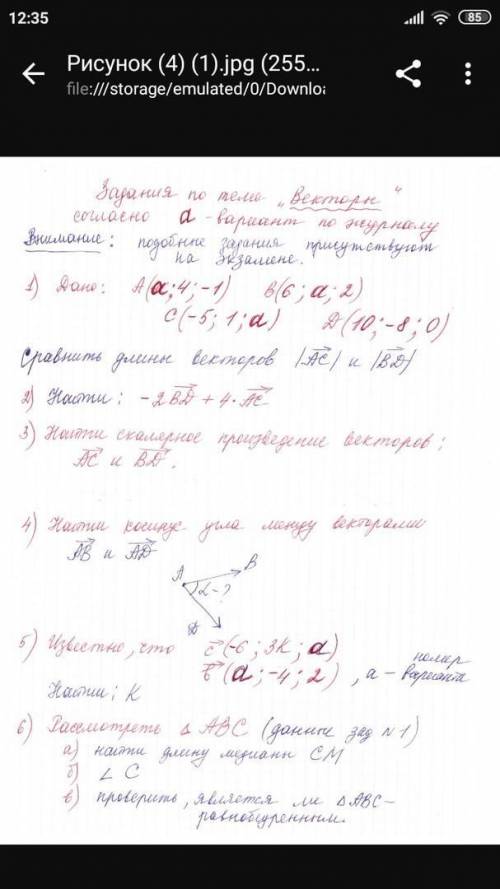 12:35
85
Рисунок (4) (1).jpg (255...
file:///storage/emulated/0/Downloa
Задания по теме „Векторы“
согласно a - вариант по журналу
Внимание: подобные задания присутствуют
на экзамене.
1) Дано: A(a; 4; -1) B(6; a; 2)
C(-5; 1; a) D(10; -8; 0)
Сравнить длины векторов |AC| и |BD|
2) Найти: -2BD + 4·AC
3) Найти скалярное произведение векторов:
AC и BD.
4) Найти косинус угла между векторами
AB и AD
A B
α-?
D
5) Известно, что c(-6; 3K; a)
b(a; -4; 2), a - номер варианта
Найти: K
6) Рассмотреть △ ABC (данные зад N1)
а) найти длину медианы CM
б) ∠ C
в) проверить, является ли △ABC -
равнобедренным.